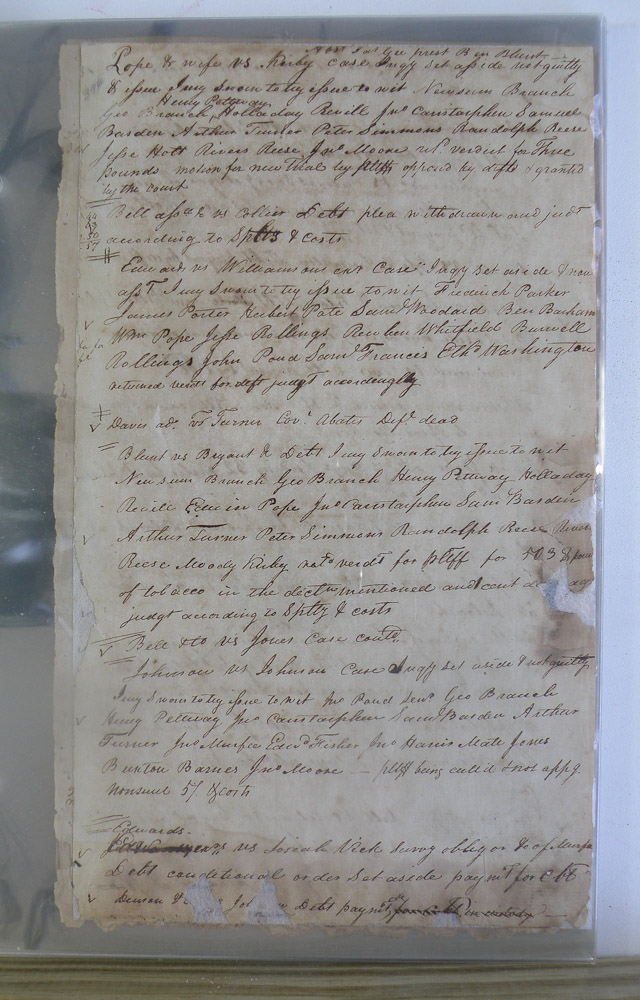 Most Jas Gee prest Ben Blunt
Pope & wife vs Kirby Case Judgt set asside not guilty
& issue Jury sworn to try issue to wit Newsum Branch
Henry Pettway
Geo Branch Holladay Revill Jno Carstarphen Samuel
Barden Arthur Turner Peter Simmons Randolph Reese
Jesse Holt Rivers Reese Jno Moore rd verdict for Three
pounds motion for new trial by pltff opposd by defts & granted
by the court
Bell assee vs Collier Debt plea withdrawn and judt
according to Splty & costs
Edwards vs Williamsons exr Case Judgt set aside & non
asst Jury sworn to try issue to wit Frederick Parker
James Porter Herbert Pate Saml Woodard Ben Barham
Wm Pope Jesse Rollings Reuben Whitfield Burwell
Rollings John Pond Saml Francis Ethd Washington
returned verdt for deft judgt accordingly
Davis ad. vs Turner Covt Abates Deft dead
Blunt vs Bryant & Debt Jury sworn to try issue to wit
Newsum Branch Geo Branch Henry Pettway Holladay
Revill Edwin Pope Jno Carstarphen Sam Barden
Arthur Turner Peter Simmons Randolph Reese Rivers
Reese Moody Kirby retd verdt for pltff for 503
of tobacco in the declrn mentioned and 1 cent
judgt according to Splty & costs
Bell & to vs Jones Case contd
Johnson vs Johnson Case Judgt set aside & not guilty
Jury sworn to try issue to wit Jno Pond Lewis Geo Branch
Henry Pettway Jno Carstarphen Saml Barden Arthur
Turner Jno Murfee Edwd Fisher Jno Harris Mate Jones
Buxton Barnes Jno Moore — pltff being called & not appg
nonsuit 5/ & costs
Edwards
vs Josiah Vick survg obligor & of Murfee
Debt conditional order set aside paymt for
Denson & Jo Debt paymt in custody